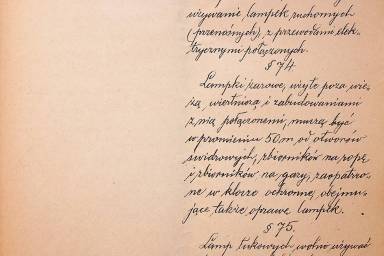 używanie lampek ruchomych
(przenośnych), z przewodami elek-
trycznymi połączonych.
§ 74.
Lampki żarowe, użyte poza wie-
żą, wiertniczą i zabudowaniami
z nią połączonemi, muszą być
w promieniu 50 m od otworów
świdrowych, zbiorników na ropę
i zbiorników na gazy, zaopatrzo-
ne w klosze ochronne, obejmu-
jące także oprawę lampek.
§ 75.
Lamp łukowych wolno używać